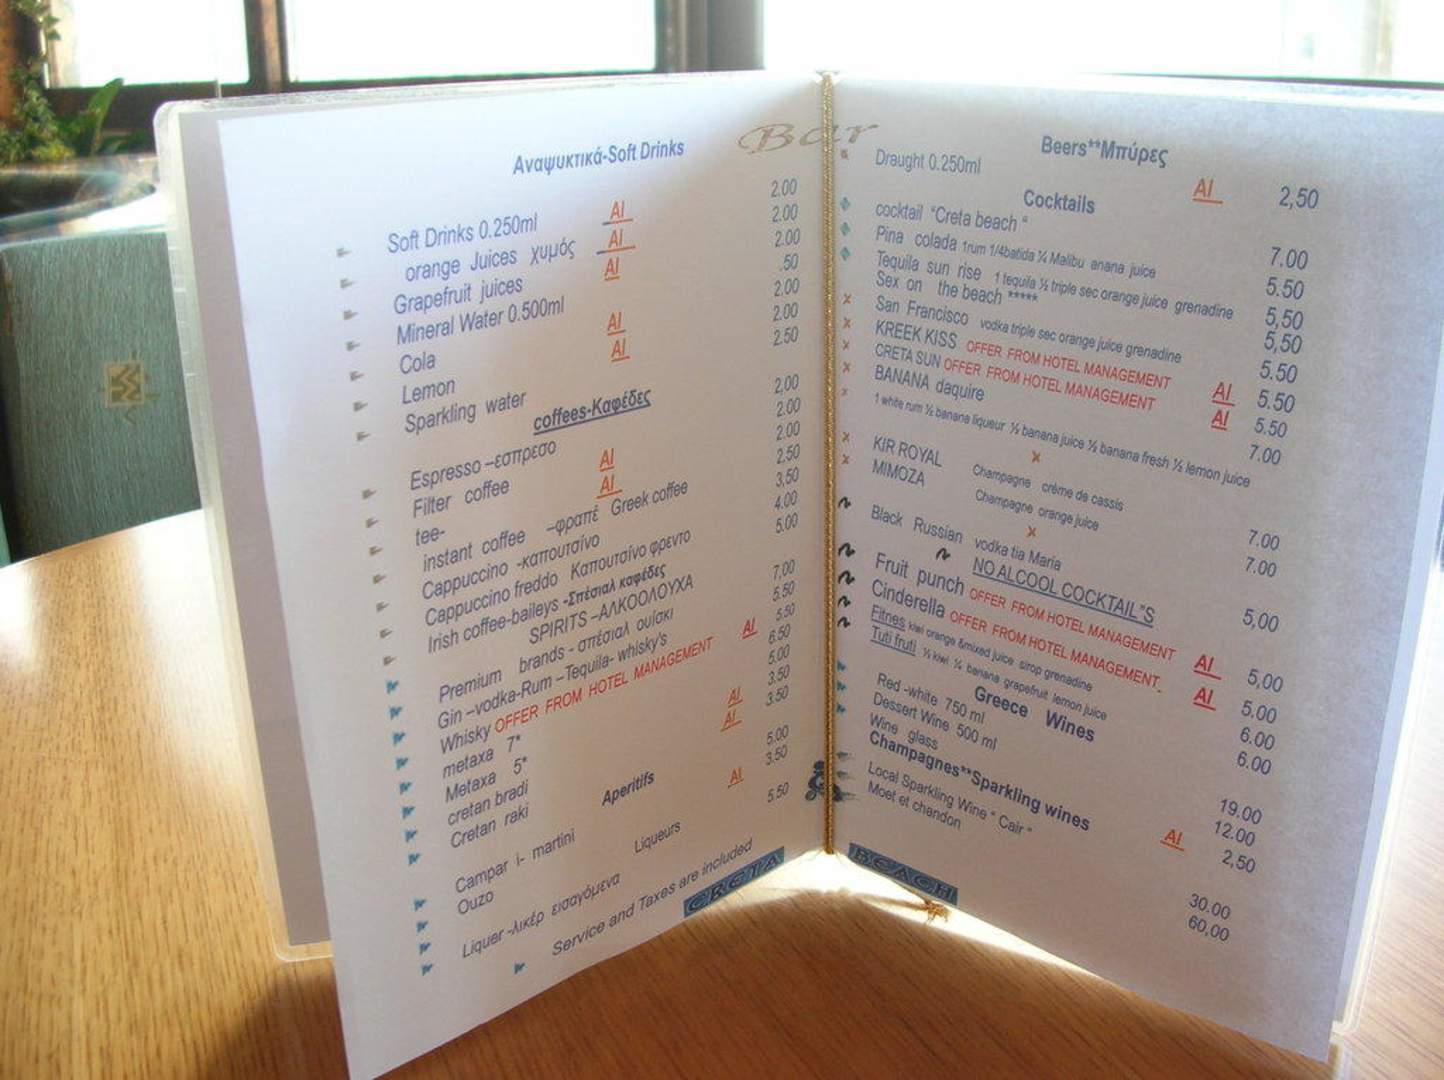 Bar
Αναψυκτικά-Soft Drinks
Soft Drinks 0.250ml AI 2.00
orange Juices χυμός AI 2.00
Grapefruit juices AI 2.00
Mineral Water 0.500ml .50
Cola AI 2.00
Lemon AI 2.00
Sparkling water 2.50
coffees-Καφέδες
Espresso –εσπρεσο 2,00
Filter coffee AI 2.00
tee- AI 2.00
instant coffee –φραπέ Greek coffee 2.50
Cappuccino -καπουτσίνο 3,50
Cappuccino freddo Καπουτσίνο φρεντο 4.00
Irish coffee-baileys -Σπέσιαλ καφέδες 5.00
SPIRITS –ΑΛΚΟΟΛΟΥΧΑ
Premium brands - σπέσιαλ ουίσκι 7,00
Gin –vodka-Rum –Tequila- whisky's 5.50
Whisky OFFER FROM HOTEL MANAGEMENT AI 5.50
metaxa 7* 6.50
Metaxa 5* 5.00
cretan bradi AI 3.50
Cretan raki AI 3.50
Aperitifs
Campar i- martini 5.00
Ouzo AI 3.50
Liqueurs
Liquer -λικέρ εισαγόμενα 5.50
Service and Taxes are included
CRETA
Beers**Μπύρες
Draught 0.250ml AI 2,50
Cocktails
cocktail "Creta beach " 7.00
Pina colada 1rum 1/4batida ¼ Malibu anana juice 5.50
Tequila sun rise 1 tequila ½ triple sec orange juice grenadine 5,50
Sex on the beach ***** 5,50
San Francisco vodka triple sec orange juice grenadine 5.50
KREEK KISS OFFER FROM HOTEL MANAGEMENT AI 5.50
CRETA SUN OFFER FROM HOTEL MANAGEMENT AI 5.50
BANANA daquire 7.00
1 white rum ½ banana liqueur ½ banana juice ½ banana fresh ½ lemon juice
KIR ROYAL Champagne crème de cassis 7.00
MIMOZA Champagne orange juice 7.00
Black Russian vodka tia Maria 5,00
NO ALCOOL COCKTAIL"S
Fruit punch OFFER FROM HOTEL MANAGEMENT AI 5,00
Cinderella OFFER FROM HOTEL MANAGEMENT AI 5.00
Fitnes kiwi orange &mixed juice sirop grenadine 6.00
Tuti fruti ½ kiwi ¼ banana grapefruit lemon juice 6.00
Greece Wines
Red -white 750 ml 19.00
Dessert Wine 500 ml 12.00
Wine glass AI 2,50
Champagnes**Sparkling wines
Local Sparkling Wine " Cair " 30.00
Moet et chandon 60,00
BEACH